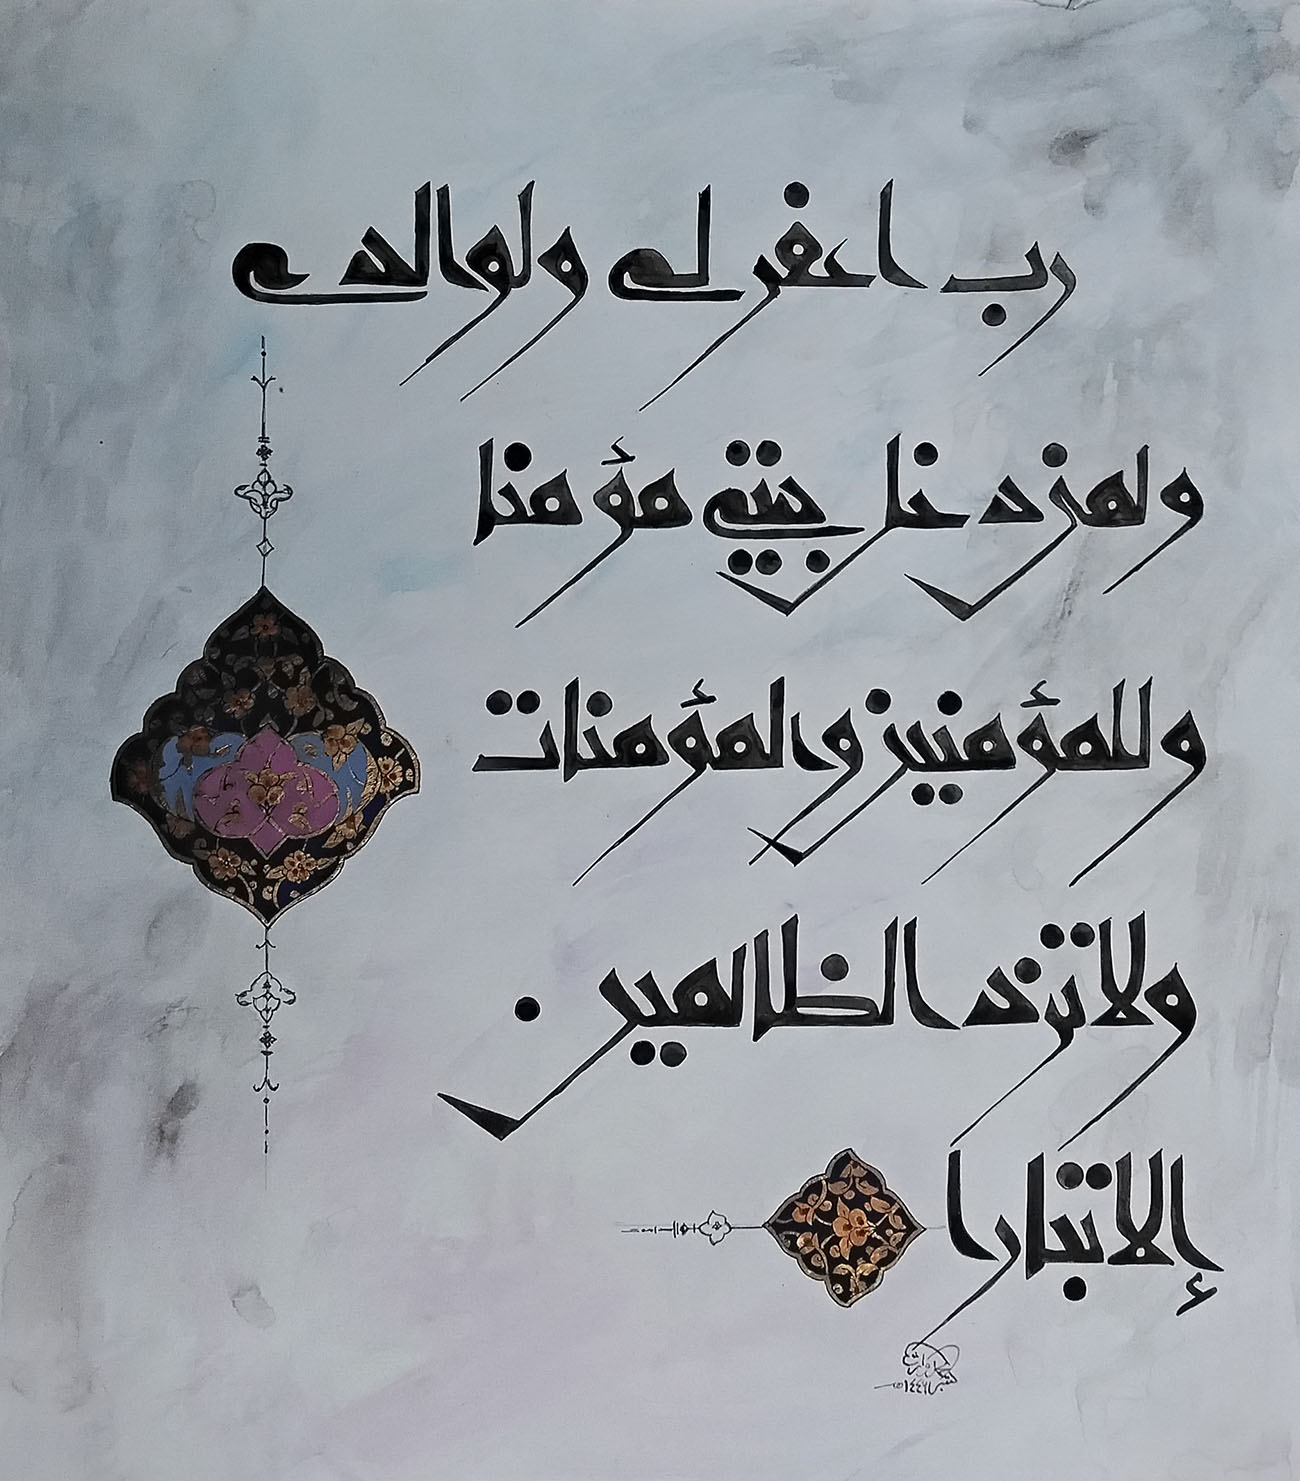 رب اغفر لي ولوالدي
ولمن دخل بيتي مؤمنا
وللمؤمنين والمؤمنات
ولا تزد الظالمين
إلا تبارا